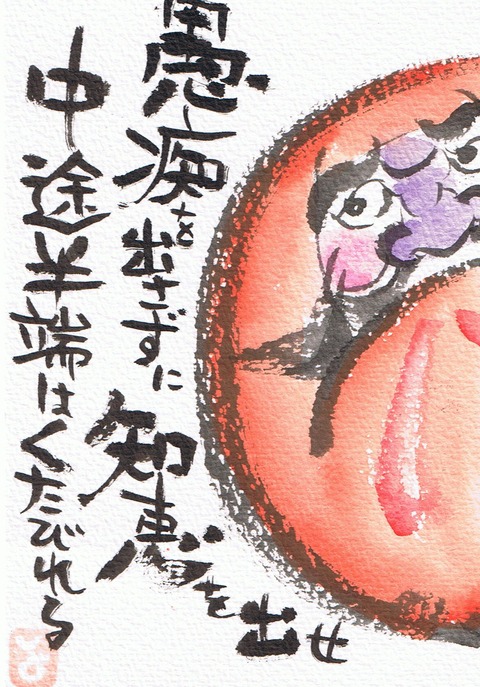 愚痴を出さずに知恵を出せ
中途半端はくたびれる